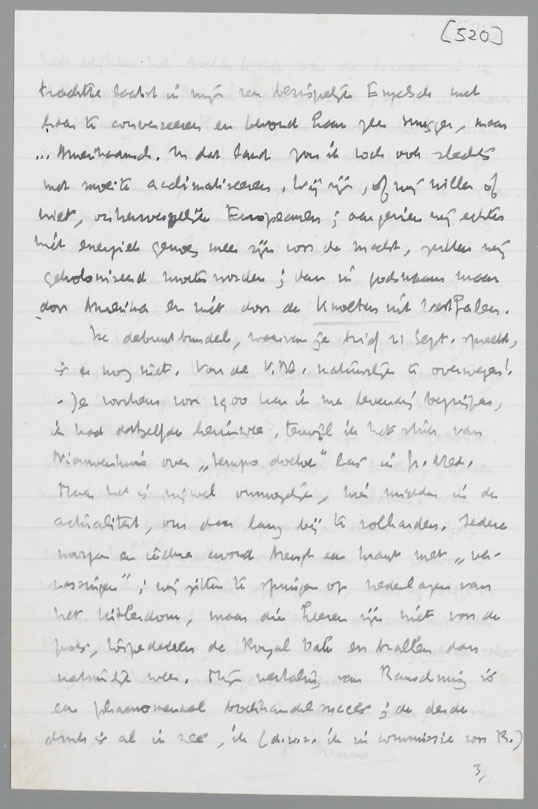 [520]
trachtte laatst in mijn zeer berispelijk Engelsch met
haar te converseeren en bevond haar zeer snugger, maar
... Amerikaansch. In dat land zou ik toch ook slechts
met moeite acclimatiseeren. Wij zijn, of wij willen of
niet, onherroepelijk Europeanen; aangezien wij echter
niet energiek genoeg meer zijn voor de macht, zullen wij
gekoloniseerd moeten worden; dan in godsnaam maar
door Amerika en niet door de Knoeten uit Westfalen.
De debuutbundel, waarvan je brief 21 Sept. spreekt,
is er nog niet. Voor de V.Bl. natuurlijk te overwegen!
- Je voorkeur voor 1900 kan ik me levendig begrijpen,
ik had datzelfde heimwee, terwijl ik het stuk van
Nieuwenhuis over "Tempo doeloe" las in Gr. Ned.
Maar het is vrijwel onmogelijk, hier midden in de
actualiteit, om daar lang bij te volharden. Iedere
morgen en iedere avond brengt een krant met "ver-
rassingen"; wij zitten te springen op nederlagen van
het Hitlerdom, maar die heeren zijn niet voor de
poes, torpedeeren de Royal Oak en brallen dan
natuurlijk weer. Mijn vertaling van Rauschning is
een phaenomenaal boekhandelsucces; de derde
druk is al in zee, ik (d.w.z. ik in commissie voor R.)
3,